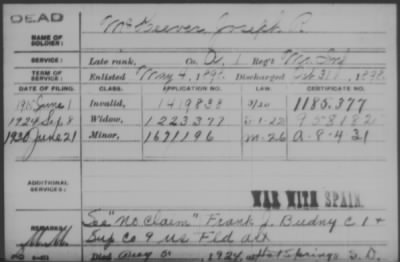 DEAD
NAME OF SOLDIER: McKeever, Joseph P.
SERVICE: Late rank, Co. D, 1 Reg't
TERM OF SERVICE: Enlisted May 4, 1898. Discharged Oct 31, 1898.
DATE OF FILING. CLASS. APPLICATION NO. LAW. CERTIFICATE NO.
June 1 Invalid, 1419838 1185.377
1924 Sep 8 Widow, 1223377
1930 June 21 Minor, 1671196 M-26 A-8-4-31
ADDITIONAL SERVICES:
WAR WITH SPAIN.
REMARKS: See "No Claim" Frank J. Budny C 1 &
Sup Co 9 US Fld Art
Died Aug 1924, Hot Springs S.D.